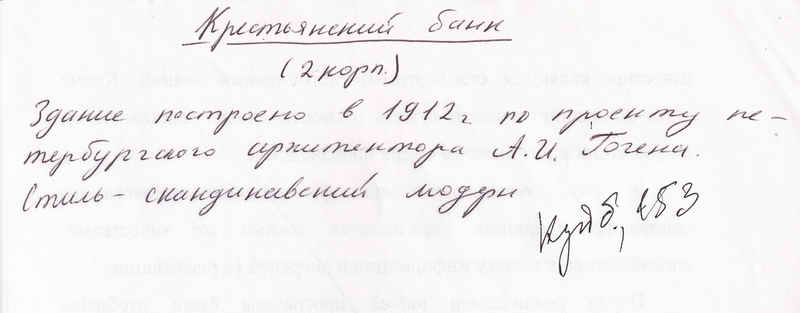 Крестьянский банк
(2 корп.)
Здание построено в 1912 г по проекту пе-
тербургского архитектора А.И. Гогена.
Стиль - скандинавский модерн
Куйб.,